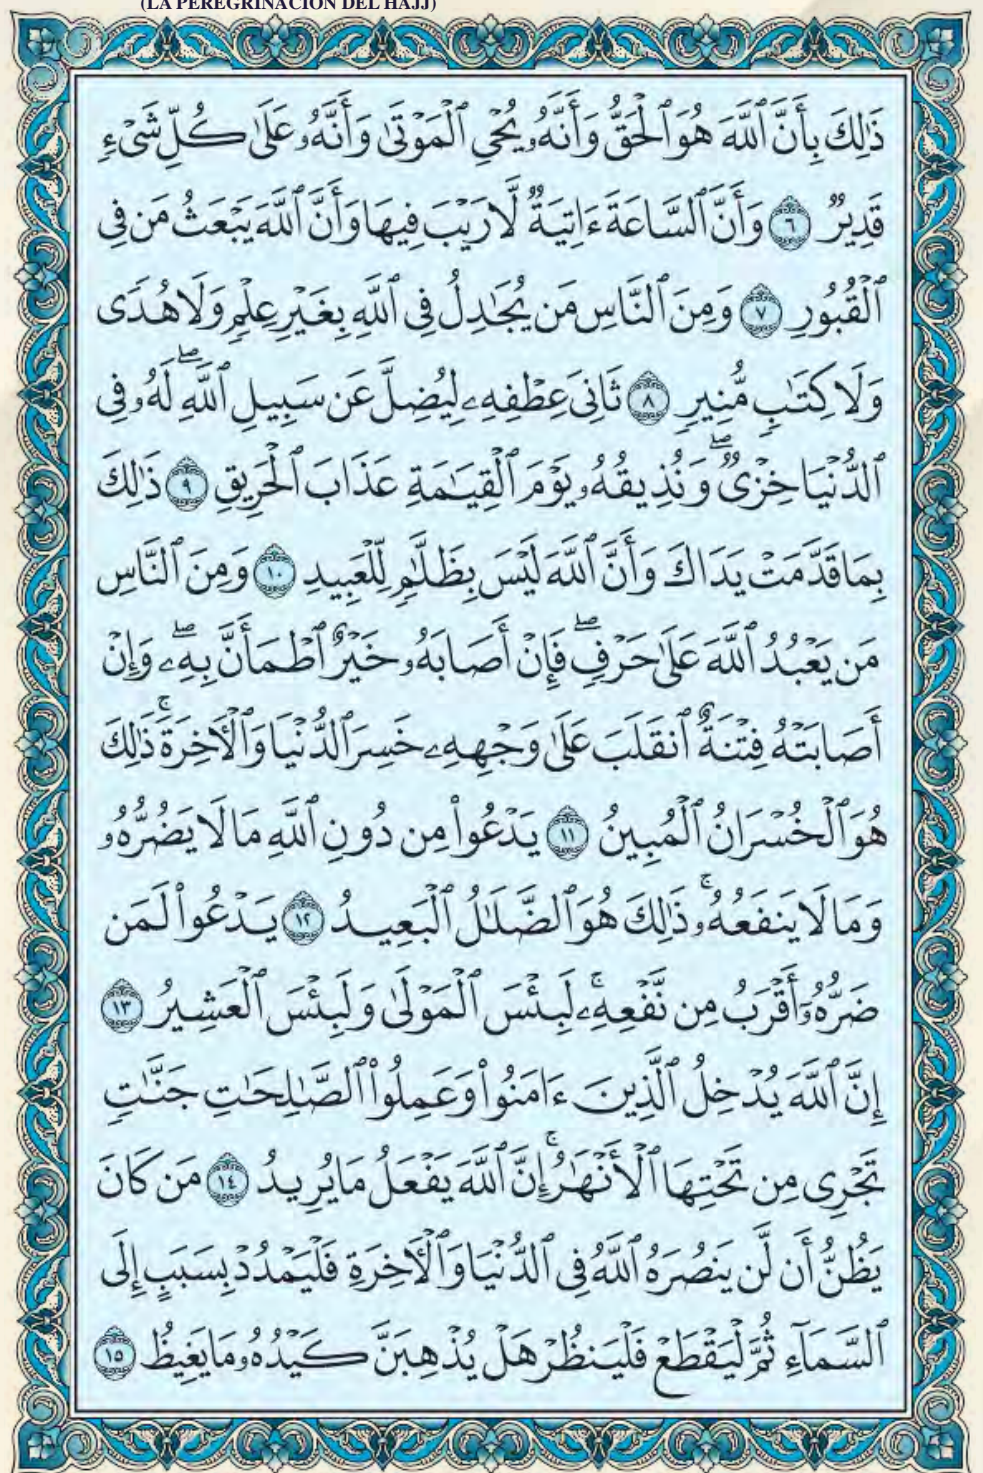 (LA PEREGRINACIÓN DEL HAJJ)
ذَٰلِكَ بِأَنَّ ٱللَّهَ هُوَ ٱلْحَقُّ وَأَنَّهُۥ يُحْىِ ٱلْمَوْتَىٰ وَأَنَّهُۥ عَلَىٰ كُلِّ شَىْءٍ
قَدِيرٌ ٦ وَأَنَّ ٱلسَّاعَةَ ءَاتِيَةٌ لَّا رَيْبَ فِيهَا وَأَنَّ ٱللَّهَ يَبْعَثُ مَن فِى
ٱلْقُبُورِ ٧ وَمِنَ ٱلنَّاسِ مَن يُجَٰدِلُ فِى ٱللَّهِ بِغَيْرِ عِلْمٍ وَلَا هُدًى
وَلَا كِتَٰبٍ مُّنِيرٍ ٨ ثَانِىَ عِطْفِهِۦ لِيُضِلَّ عَن سَبِيلِ ٱللَّهِ ۖ لَهُۥ فِى
ٱلدُّنْيَا خِزْىٌ ۖ وَنُذِيقُهُۥ يَوْمَ ٱلْقِيَٰمَةِ عَذَابَ ٱلْحَرِيقِ ٩ ذَٰلِكَ
بِمَا قَدَّمَتْ يَدَاكَ وَأَنَّ ٱللَّهَ لَيْسَ بِظَلَّٰمٍ لِّلْعَبِيدِ ١٠ وَمِنَ ٱلنَّاسِ
مَن يَعْبُدُ ٱللَّهَ عَلَىٰ حَرْفٍ ۖ فَإِنْ أَصَابَهُۥ خَيْرٌ ٱطْمَأَنَّ بِهِۦ ۖ وَإِنْ
أَصَابَتْهُ فِتْنَةٌ ٱنقَلَبَ عَلَىٰ وَجْهِهِۦ خَسِرَ ٱلدُّنْيَا وَٱلْءَاخِرَةَ ۚ ذَٰلِكَ
هُوَ ٱلْخُسْرَانُ ٱلْمُبِينُ ١١ يَدْعُوا۟ مِن دُونِ ٱللَّهِ مَا لَا يَضُرُّهُۥ
وَمَا لَا يَنفَعُهُۥ ۚ ذَٰلِكَ هُوَ ٱلضَّلَٰلُ ٱلْبَعِيدُ ١٢ يَدْعُوا۟ لَمَن
ضَرُّهُۥٓ أَقْرَبُ مِن نَّفْعِهِۦ ۚ لَبِئْسَ ٱلْمَوْلَىٰ وَلَبِئْسَ ٱلْعَشِيرُ ١٣
إِنَّ ٱللَّهَ يُدْخِلُ ٱلَّذِينَ ءَامَنُوا۟ وَعَمِلُوا۟ ٱلصَّٰلِحَٰتِ جَنَّٰتٍ
تَجْرِى مِن تَحْتِهَا ٱلْأَنْهَٰرُ ۚ إِنَّ ٱللَّهَ يَفْعَلُ مَا يُرِيدُ ١٤ مَن كَانَ
يَظُنُّ أَن لَّن يَنصُرَهُ ٱللَّهُ فِى ٱلدُّنْيَا وَٱلْءَاخِرَةِ فَلْيَمْدُدْ بِسَبَبٍ إِلَى
ٱلسَّمَآءِ ثُمَّ لْيَقْطَعْ فَلْيَنظُرْ هَلْ يُذْهِبَنَّ كَيْدُهُۥ مَا يَغِيظُ ١٥